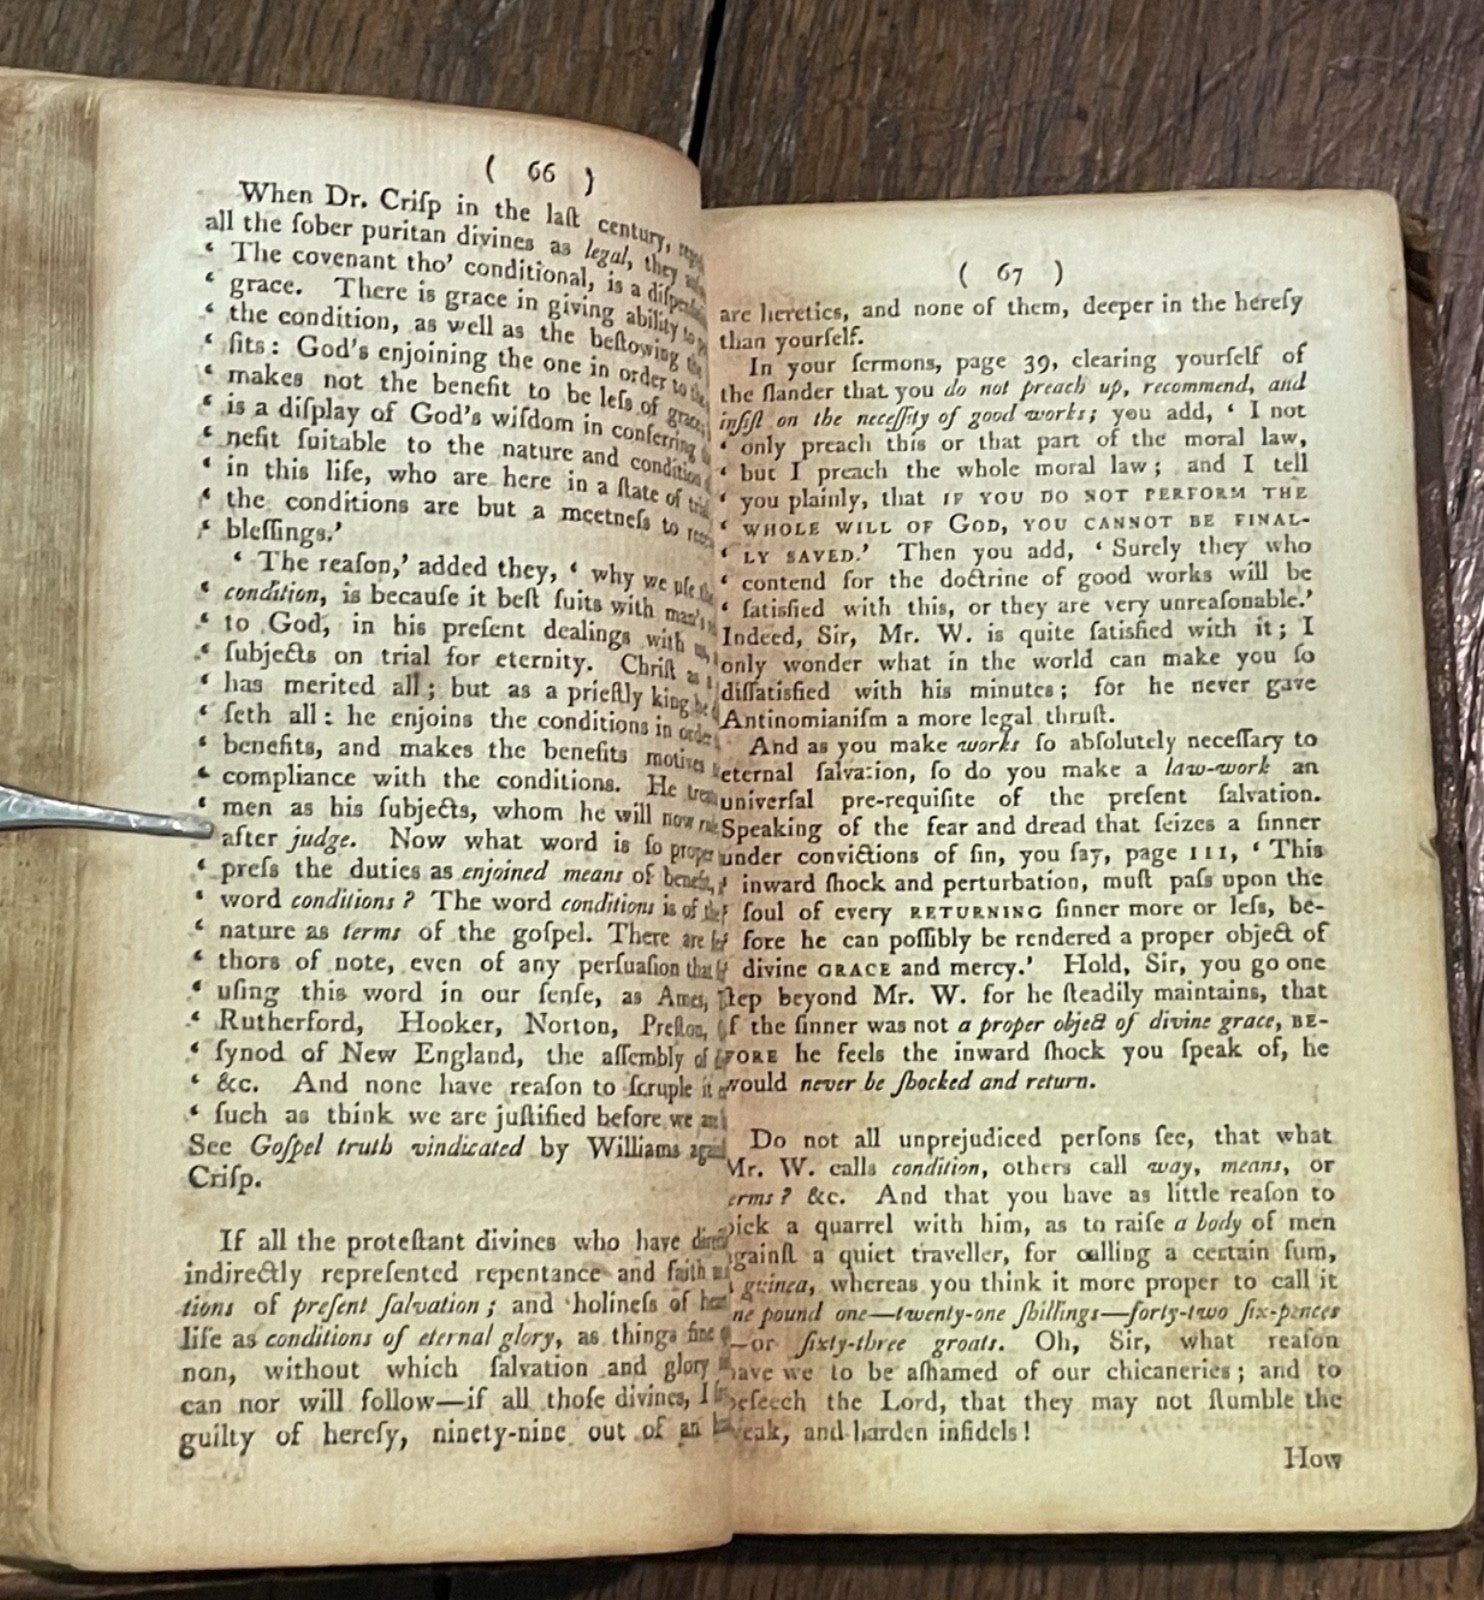 ( 66 )
When Dr. Criſp in the laſt century,
all the ſober puritan divines as legal, they
‘ The covenant tho’ conditional, is a
‘ grace. There is grace in giving ability to
‘ the condition, as well as the beſtowing the
‘ fits: God’s enjoining the one in order to the
‘ makes not the benefit to be leſs of grace;
‘ is a diſplay of God’s wiſdom in conferring
‘ nefit ſuitable to the nature and condition
‘ in this life, who are here in a ſtate of
‘ the conditions are but a meetneſs to
‘ bleſſings.’
‘ The reaſon,’ added they, ‘ why we uſe the
‘ condition, is becauſe it beſt ſuits with man’s
‘ to God, in his preſent dealings with
‘ ſubjects on trial for eternity. Chriſt as
‘ has merited all; but as a prieſtly king he
‘ ſeth all: he enjoins the conditions in order
‘ benefits, and makes the benefits motives
‘ compliance with the conditions. He
‘ men as his ſubjects, whom he will now
after judge. Now what word is ſo proper
‘ preſs the duties as enjoined means of
‘ word conditions? The word conditions is of the
‘ nature as terms of the goſpel. There are
‘ thors of note, even of any perſuaſion that
‘ uſing this word in our ſenſe, as Ames,
‘ Rutherford, Hooker, Norton, Preſton,
‘ ſynod of New England, the aſſembly of
‘ &c. And none have reaſon to ſcruple it
‘ ſuch as think we are juſtified before we
See Goſpel truth vindicated by Williams
Criſp.
If all the proteſtant divines who have
indirectly repreſented repentance and faith
tions of preſent ſalvation; and holineſs of
life as conditions of eternal glory, as things ſine
non, without which ſalvation and glory
can nor will follow—if all thoſe divines, I
guilty of hereſy, ninety-nine out of an
( 67 )
are heretics, and none of them, deeper in the hereſy
than yourſelf.
In your ſermons, page 39, clearing yourſelf of
the ſlander that you do not preach up, recommend, and
inſiſt on the neceſſity of good works; you add, ‘ I not
‘ only preach this or that part of the moral law,
‘ but I preach the whole moral law; and I tell
‘ you plainly, that IF YOU DO NOT PERFORM THE
‘ WHOLE WILL OF GOD, YOU CANNOT BE FINAL-
‘ LY SAVED.’ Then you add, ‘ Surely they who
‘ contend for the doctrine of good works will be
‘ ſatisfied with this, or they are very unreaſonable.’
Indeed, Sir, Mr. W. is quite ſatisfied with it; I
only wonder what in the world can make you ſo
diſſatisfied with his minutes; for he never gave
Antinomianiſm a more legal thruſt.
And as you make works ſo abſolutely neceſſary to
eternal ſalvation, ſo do you make a law-work an
univerſal pre-requiſite of the preſent ſalvation.
Speaking of the fear and dread that ſeizes a ſinner
under convictions of ſin, you ſay, page 111, ‘ This
‘ inward ſhock and perturbation, muſt paſs upon the
‘ ſoul of every RETURNING ſinner more or leſs, be-
‘ fore he can poſſibly be rendered a proper object of
‘ divine GRACE and mercy.’ Hold, Sir, you go one
ſtep beyond Mr. W. for he ſteadily maintains, that
if the ſinner was not a proper object of divine grace, BE-
FORE he feels the inward ſhock you ſpeak of, he
would never be ſhocked and return.
Do not all unprejudiced perſons ſee, that what
Mr. W. calls condition, others call way, means, or
terms? &c. And that you have as little reaſon to
pick a quarrel with him, as to raiſe a body of men
againſt a quiet traveller, for calling a certain ſum,
a guinea, whereas you think it more proper to call it
one pound one—twenty-one ſhillings—forty-two ſix-pences
—or ſixty-three groats. Oh, Sir, what reaſon
have we to be aſhamed of our chicaneries; and to
beſeech the Lord, that they may not ſtumble the
weak, and harden infidels!
How